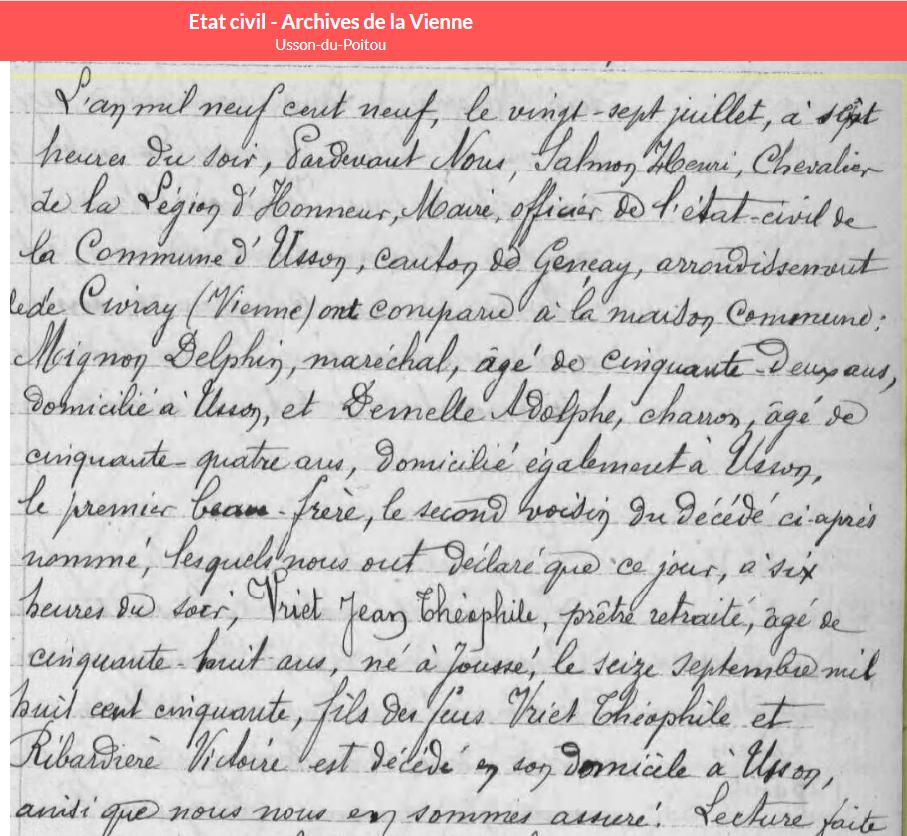 Etat civil - Archives de la Vienne
Usson-du-Poitou
L'an mil neuf cent neuf, le vingt-sept juillet, à sept
heures du soir, Pardevant Nous, Salmon Henri, Chevalier
de la Légion d'Honneur, Maire, officier de l'état-civil de
la Commune d'Usson, canton de Gençay, arrondissement
de Civray (Vienne) ont comparu à la maison Commune:
Mignon Delphin, maréchal, âgé de cinquante-deux ans,
domicilié à Usson, et Demelle Adolphe, charron, âgé de
cinquante-quatre ans, domicilié également à Usson,
le premier beau-frère, le second voisin du décédé ci-après
nommé, lesquels nous ont déclaré que ce jour, à six
heures du soir, Vriet Jean Théophile, prêtre retraité, âgé de
cinquante-huit ans, né à Joussé, le seize septembre mil
huit cent cinquante, fils des feus Vriet Théophile et
Ribardière Victoire est décédé en son domicile à Usson,
ainsi que nous nous en sommes assuré. Lecture faite